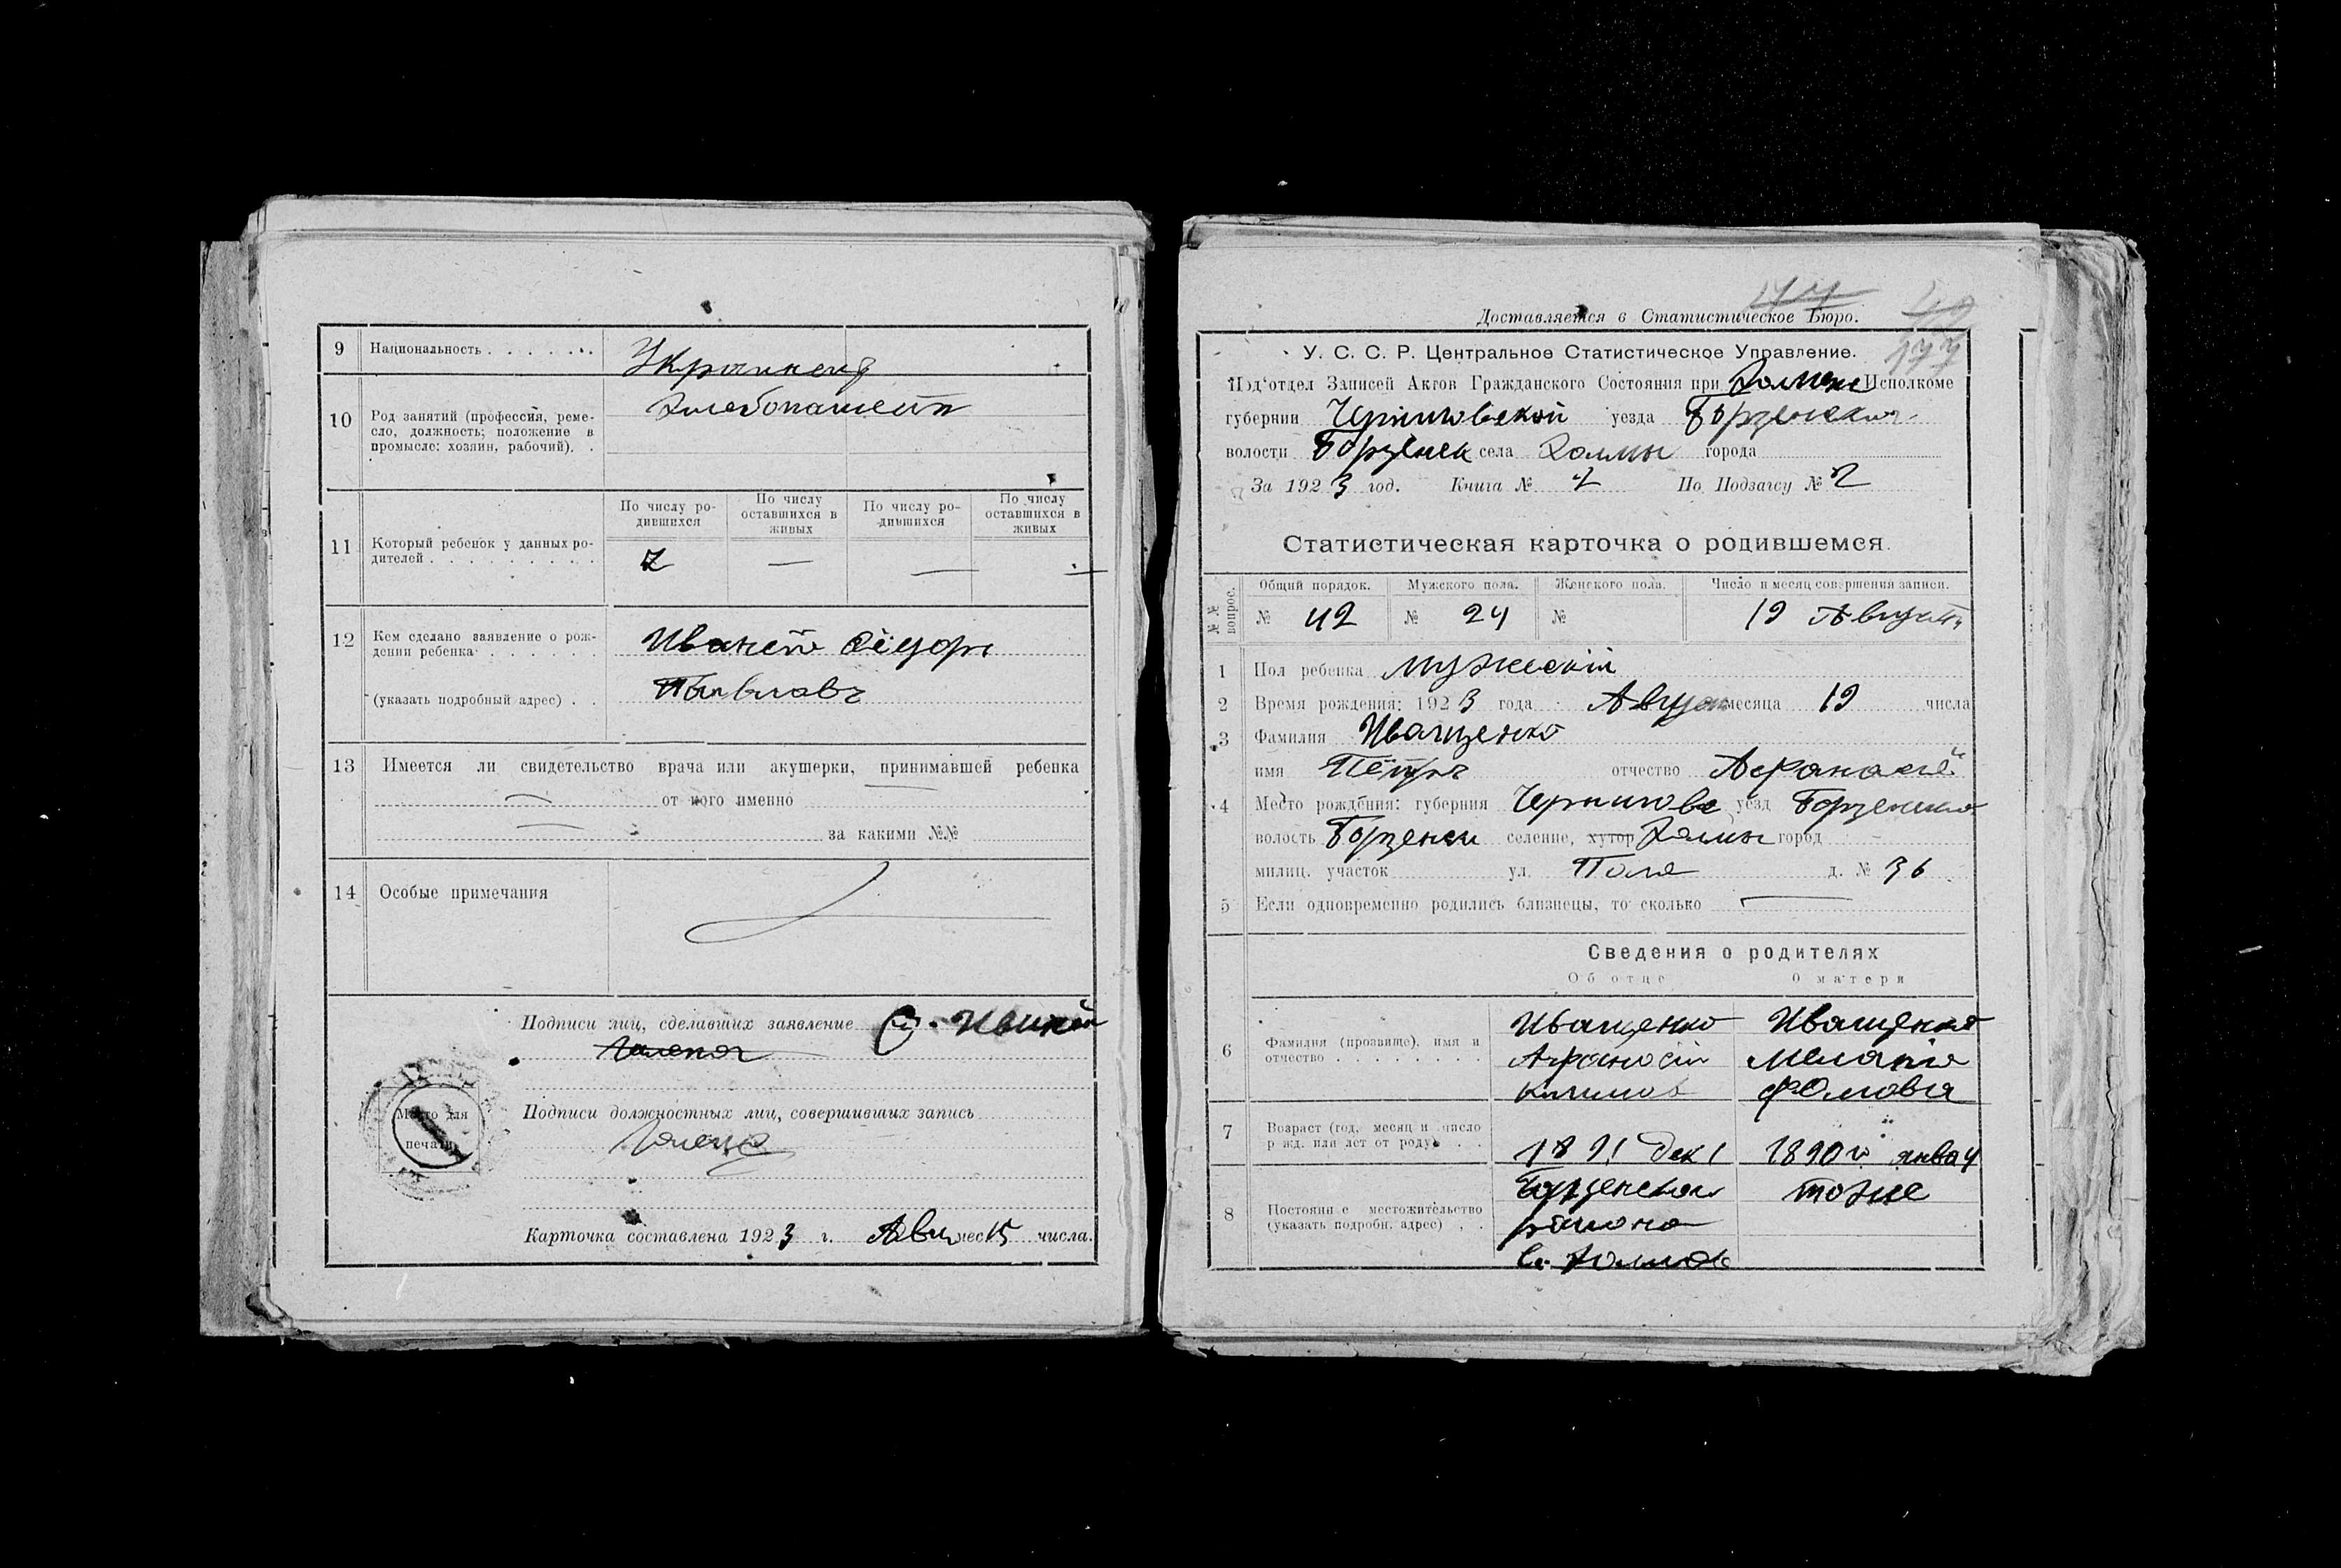 9 Национальность Украинец
Хлебопашец
10 Род занятий (профессия, реме-
сло, должность; положение в
промысле: хозяин, рабочий).
По числу ро-
дившихся
По числу
оставшихся в
живых
По числу ро-
дившихся
По числу
оставшихся в
живых
11 Который ребенок у данных ро-
дителей
2 — — —
12 Кем сделано заявление о рож-
дении ребенка
(указать подробный адрес)
13 Имеется ли свидетельство врача или акушерки, принимавшей ребенка
— от кого именно —
— за какими №№
14 Особые примечания
Подписи лиц, сделавших заявление
Подписи должностных лиц, совершивших запись
Место для
печати
Карточка составлена 1923 г. Авгу мес 15 числа.
177
Доставляется в Статистическое Бюро.
У. С. С. Р. Центральное Статистическое Управление.
Под'отдел Записей Актов Гражданского Состояния при Исполкоме
губернии Черниговской уезда Борзенского
волости Борзенск села Холмы города
За 1923 год. Книга № По Подзагсу № 2
Статистическая карточка о родившемся.
№№ вопрос.
Общий порядок. Мужского пола. Женского пола. Число и месяц совершения записи.
№ 42 № 24 № 19 Августа
1 Пол ребенка мужскій
2 Время рождения: 1923 года Август месяца 19 числа
3 Фамилия Иващенко
имя Пётръ отчество Афанасіе
4 Место рождения: губерния Чернигове уезд Борзенско
волость Борзенск селение, хутор Холмы город
милиц. участок ул. д. № 36
5 Если одновременно родились близнецы, то сколько —
Сведения о родителях
Об отце О матери
6 Фамилия (прозвище), имя и
отчество
Иващенко
Афанасій
Климов
Иващенко
Меланія
Фомовна
7 Возраст (год, месяц и число
рожд. или лет от роду)
1891 дек 1
1890 янва 4
8 Постоянное местожительство
(указать подробн. адрес)
Борзенскаго
района
с. Холмов
тоже